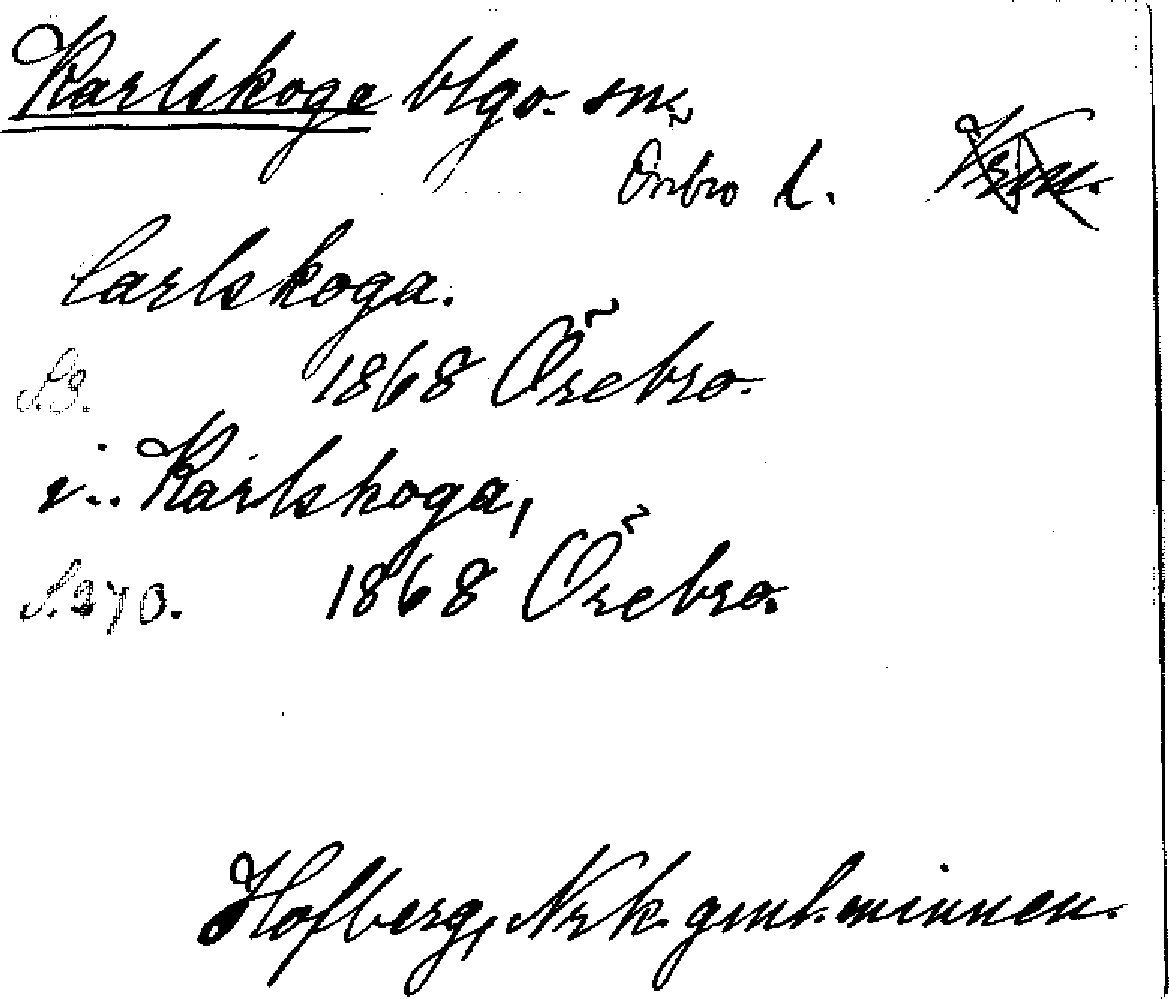 Karlskoga blgo. sn.
Örebro l. Vrml.
Carlskoga.
S.3. 1868 Örebro.
i.. Karlskoga,
S.270. 1868 Örebro.
Hofberg, Nrk. gml. minnen.